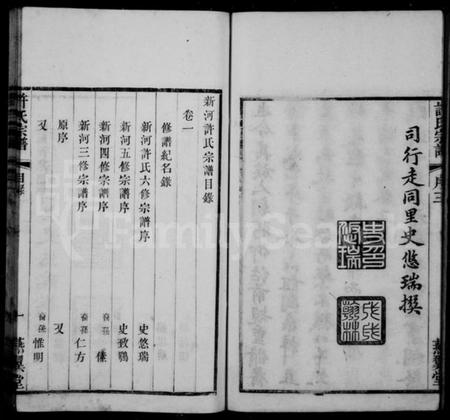 許氏宗譜
序三
司行走同里史悠瑞撰
史印悠瑞
燕翼堂
新河許氏宗譜目錄
卷一
修譜紀名錄
新河許氏六修宗譜序 史悠瑞
新河五修宗譜序 史致鶚
新河四修宗譜序 裔孫
新河三修宗譜序 裔孫仁方
原序 又
又 裔孫惟明
許氏宗譜
目錄
一
燕翼堂
FamilySearch